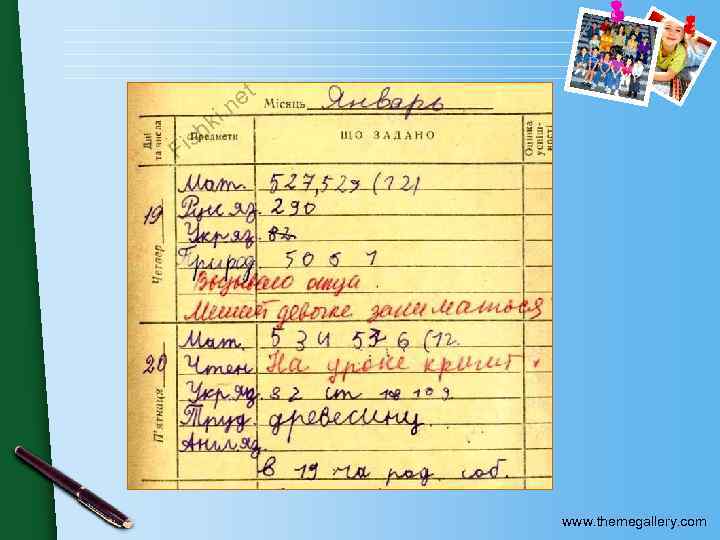 Fishki.net
Місяць Январь
Дні та числа Предмети ЩО ЗАДАНО Оцінка успіш- ності
Четвер 19
Мат. 527,529 (12)
Рус яз. 290
Укр яз. 82
Природ. 50 б 1
Вызываю отца.
Мешает девочке заниматься
П'ятниця 20
Мат. 534 537 6 (1г.
Чтен. На уроке кричит.
Укр яз. 82 ст 109
Труд. древесину.
Англ яз.
в 19 ча род. соб.
www.themegallery.com